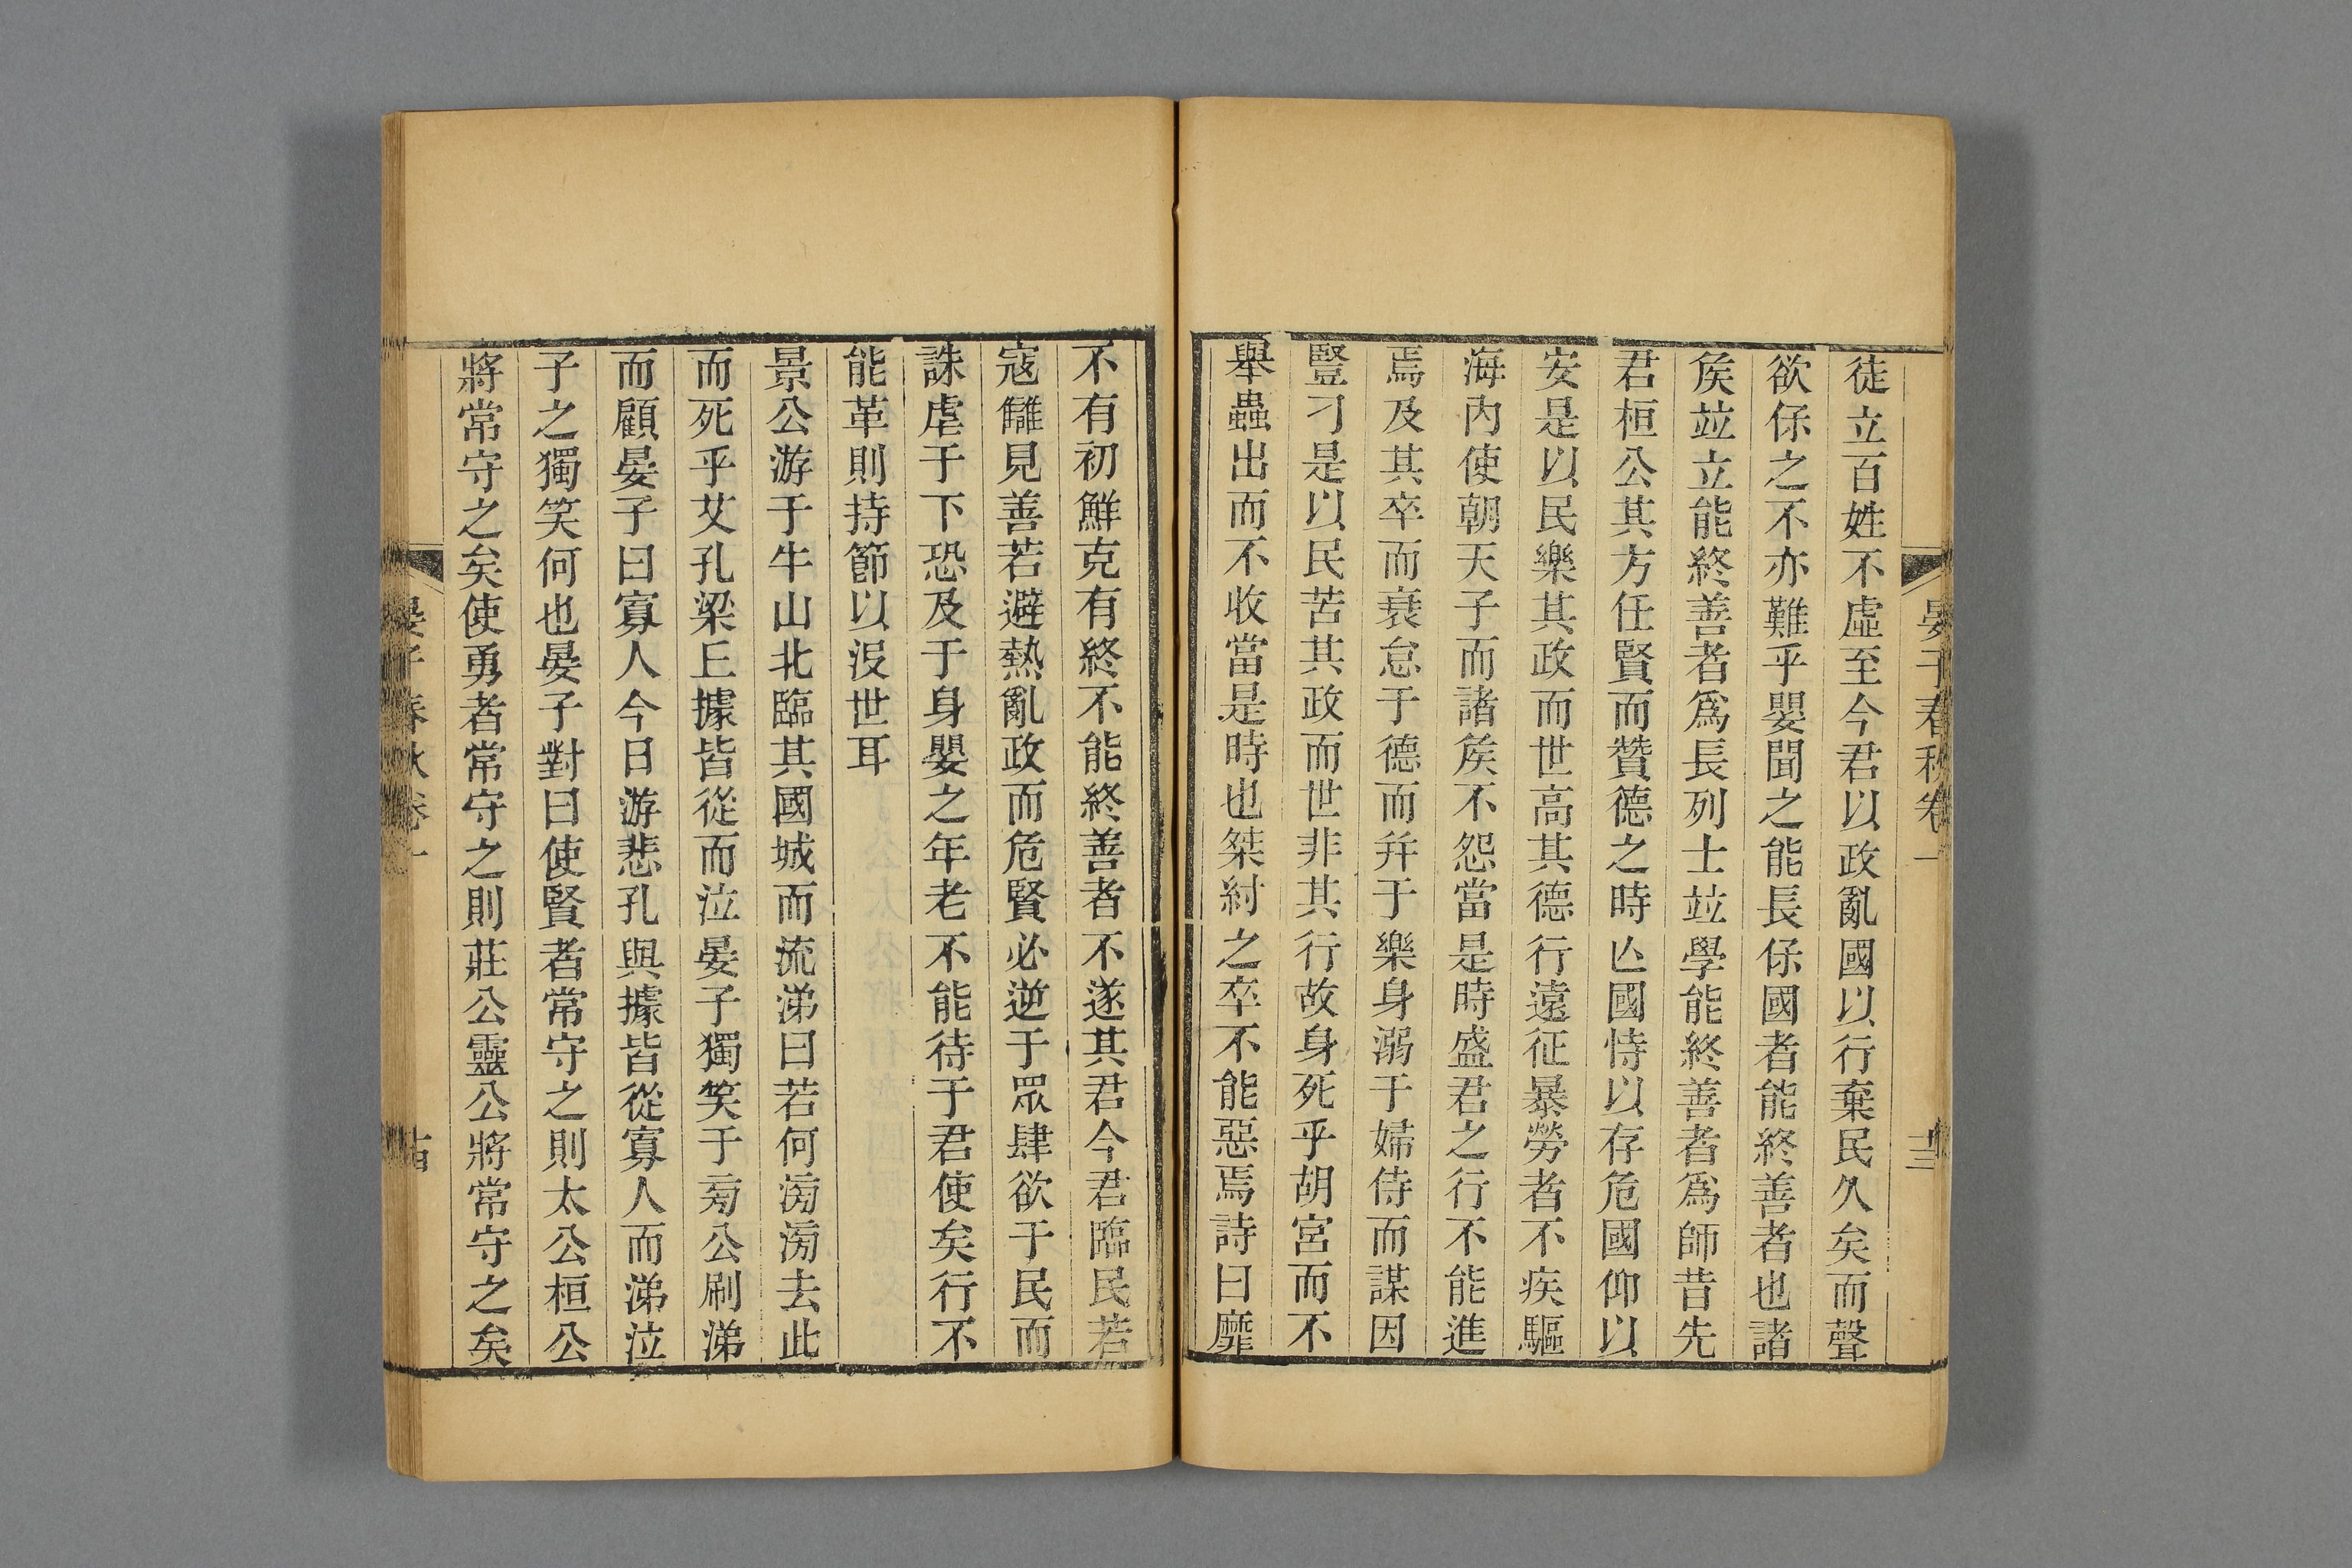 晏子春秋卷一
十三
徒立百姓不虛至今君以政亂國以行棄民久矣而聲
欲保之不亦難乎嬰聞之能長保國者能終善者也諸
矦竝立能終善者爲長列士竝學能終善者爲師昔先
君桓公其方任賢而贊德之時亾國恃以存危國仰以
安是以民樂其政而世高其德行遠征暴勞者不疾驅
海內使朝天子而諸矦不怨當是時盛君之行不能進
焉及其卒而衰怠于德而幷于樂身溺于婦侍而謀因
豎刁是以民苦其政而世非其行故身死乎胡宮而不
舉蟲出而不收當是時也桀紂之卒不能惡焉詩曰靡
不有初鮮克有終不能終善者不遂其君今君臨民若
寇讎見善若避熱亂政而危賢必逆于眾肆欲于民而
誅虐于下恐及于身嬰之年老不能待于君使矣行不
能革則持節以沒世耳
景公游于牛山北臨其國城而流涕曰若何滂滂去此
而死乎艾孔梁丘據皆從而泣晏子獨笑于㫄公刷涕
而顧晏子曰寡人今日游悲孔與據皆從寡人而涕泣
子之獨笑何也晏子對曰使賢者常守之則太公桓公
將常守之矣使勇者常守之則莊公靈公將常守之矣
晏子春秋卷一
十四